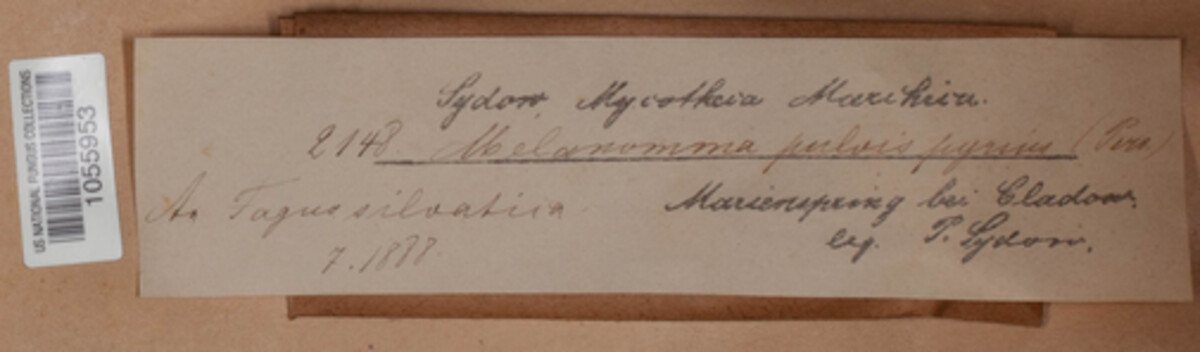 US NATIONAL FUNGUS COLLECTIONS
1055953
Sydow, Mycotheca Marchica.
2148. Melanomma pulvis pyrius (Pers)
An Fagus silvatica
Marienspring bei Cladow.
7. 1888.
leg. P. Sydow.